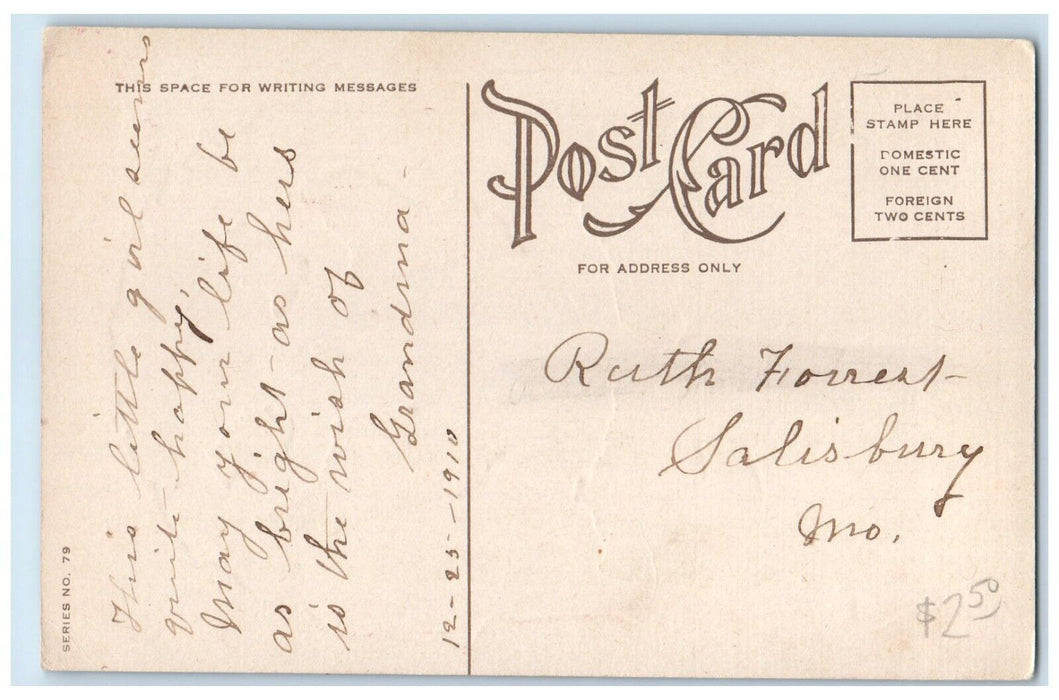 THIS SPACE FOR WRITING MESSAGES
This little girl seems
quite happy,
May your life be
as bright as hers
is the wish of
Grandma.
12-25-1910
SERIES NO. 79
Post Card
FOR ADDRESS ONLY
PLACE
STAMP HERE
DOMESTIC
ONE CENT
FOREIGN
TWO CENTS
Ruth Forrest
Salisbury
Mo.
$2.50